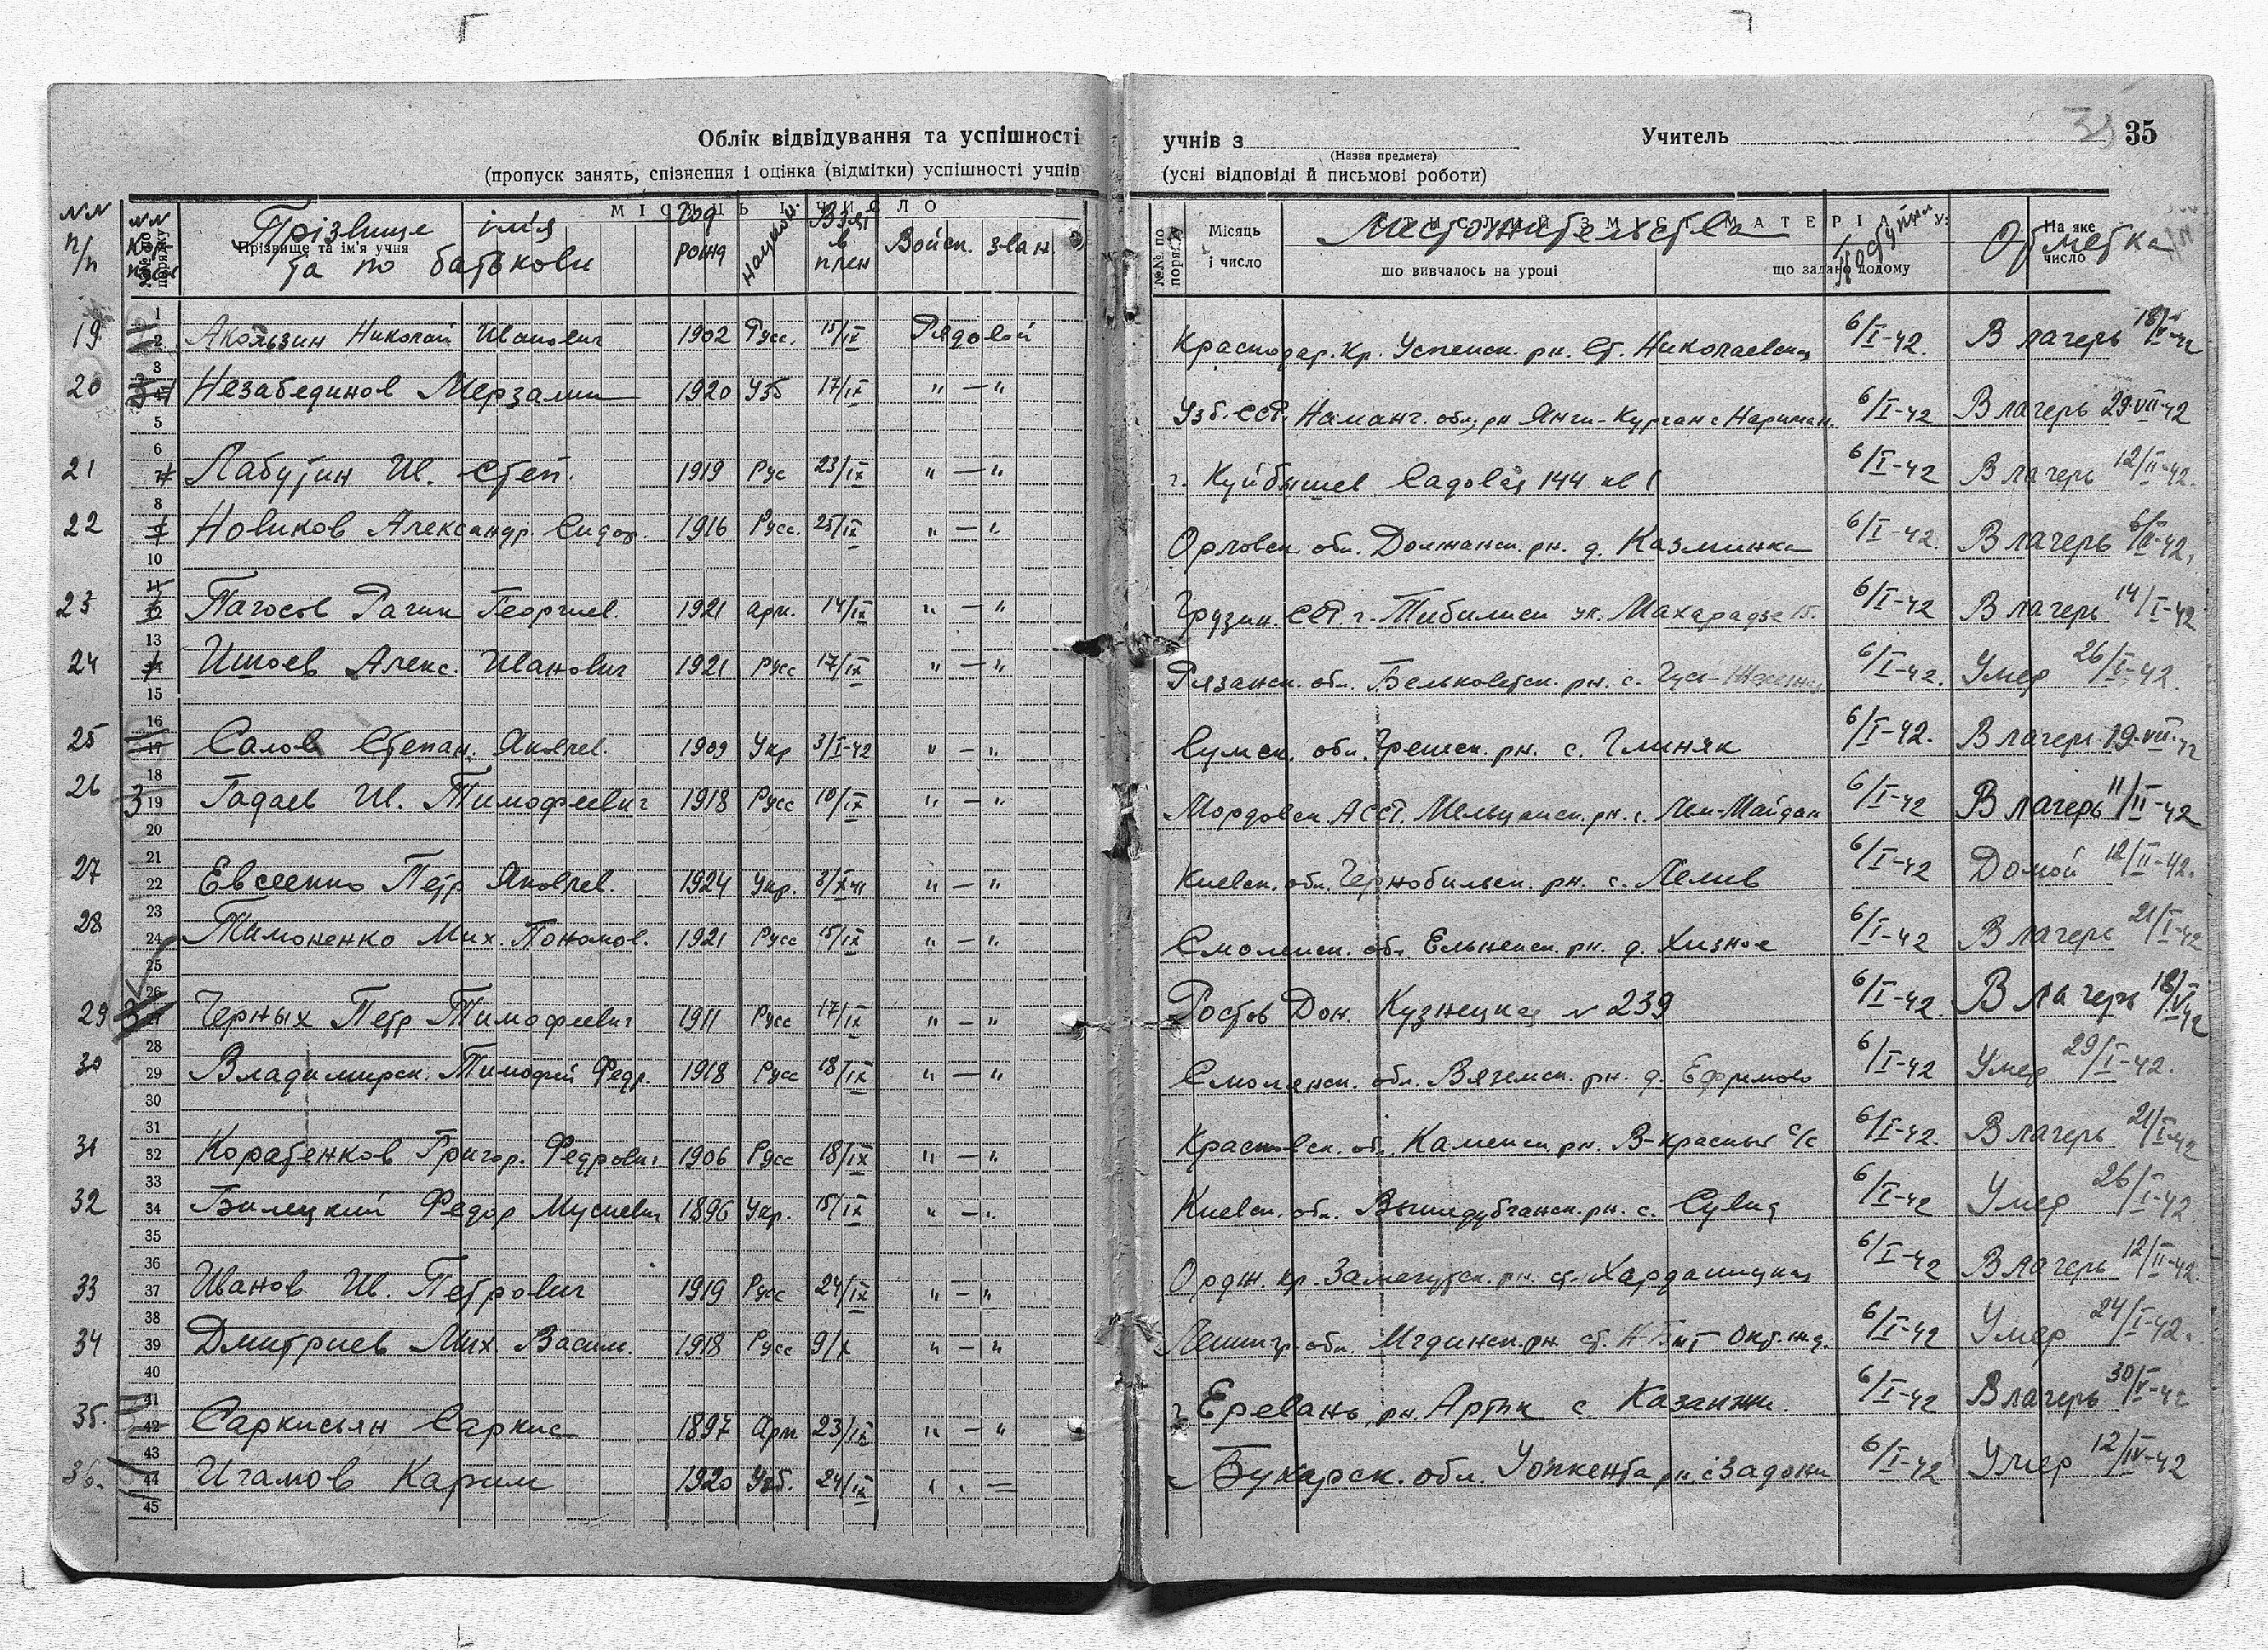 Облік відвідування та успішності
(пропуск занять, спізнення і оцінка (відмітки) успішності учнів
учнів з Учитель 35
(Назва предмета)
(усні відповіді й письмові роботи)
№№ п/п Прізвище ім'я та по батькови Год рожд национ. Взят в плен Войск. зван.
Прізвище та ім'я учня
МІСЯЦЬ І ЧИСЛО
№№ по порядку Місяць і число Местожительство поступил Отметка
що вивчалось на уроці що задано додому На яке число
19 Акользин Николай Иванович 1902 Русс. 15/IX Рядовой Краснодар. кр. Успенск. рн. ст. Николаевская 6/I-42. В лагерь
20 Незабединов Мерзалим 1920 Узб 17/IX " — " Узб. ССР, Наманг. обл, рн Янги-Курган с Нариман. 6/I-42 В лагерь 29.VII-42
21 Лабутин Ив. Степ. 1919 Рус 23/IX " — " г. Куйбышев Садовая 144 кв 1 6/I-42 В лагерь 12/II-42.
22 Новиков Александр. Сидор. 1916 Русс. 25/IX " — " Орловск. обл. Должанск. рн. д. Казминка 6/I-42. В лагерь
23 Пагосов Рагин Георгиев. 1921 арм. 14/IX " — " Грузин. ССР. г. Тибилиси ул. Махарадзе 15. 6/I-42 В лагерь 14/I-42
24 Ишоев Алекс. Иванович 1921 Русс 17/IX " — " Рязанск. обл. Бельковтск. рн. с. Гус- 6/I-42. Умер 26/I-42.
25 Салов Степан. Яковлев. 1909 Укр 3/I-42 " — " Сумск. обл. рн. с. Глиняк 6/I-42. В лагерь 19.VII-42
26 Гадаев Ив. Тимофеевич 1918 Русс 10/IX " — " Мордовск. АССР. рн. с. Майдан 6/I-42 В лагерь 11/II-42
27 Евсеенко Петр Яковлев. 1924 Укр. 3/X-41 " — " Киевск. обл. Чернобильск. рн. с. Лелив 6/I-42 Домой 12/II-42.
28 Тимоненко Мих. Пономов. 1921 Русс 15/IX " — " Смоленск. обл Ельненск. рн. д. Хизное 6/I-42 В лагерь 21/I-42
29 Черных Петр Тимофеевич 1911 Русс 17/IX " — " Ростов Дон. Кузнецкая № 239 6/I-42. В лагерь
30 Владимирск. Тимофей Федр. 1918 Русс 18/IX " — " Смоленск. обл. Вяземск. рн. д. Ефремово 6/I-42 Умер 29/I-42.
31 Корабенков Григор. Федрович 1906 Русс 18/IX " — " об. Каменск рн. В-красный с/с 6/I-42. В лагерь 21/I-42
32 Билецкий Федор Мусиевич 1896 Укр. 15/IX " — " Киевск. обл. рн. с. Сувид 6/I-42 Умер 26/I-42
33 Иванов Ив. Петрович 1919 Русс 24/IX " — " Ордж. кр. рн. ст. 6/I-42 В лагерь 12/II-42.
34 Дмитриев Мих. Васил. 1918 Русс 9/X " — " Ленингр. обл. Мгдинск. рн. ст. Окт. ж.д. 6/I-42 Умер 24/I-42.
35. Саркисьян Саркис 1897 Арм 23/IX " — " г. Еревань, рн. Артик с. Казанжи. 6/I-42 В лагерь
36. Игамов Карим 1920 Узб. 24/IX Бухарск. обл. рн с Задони 6/I-42 Умер 12/IV-42